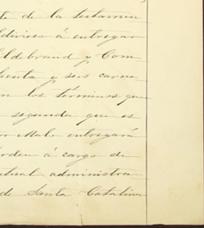 te de la testamen
ldivieso á entregar
ildebrand y Com
henta y seis carne
en los términos que
segunda que es
or Malo entregará
orden á cargo de
actual administra
de Santa Catalina